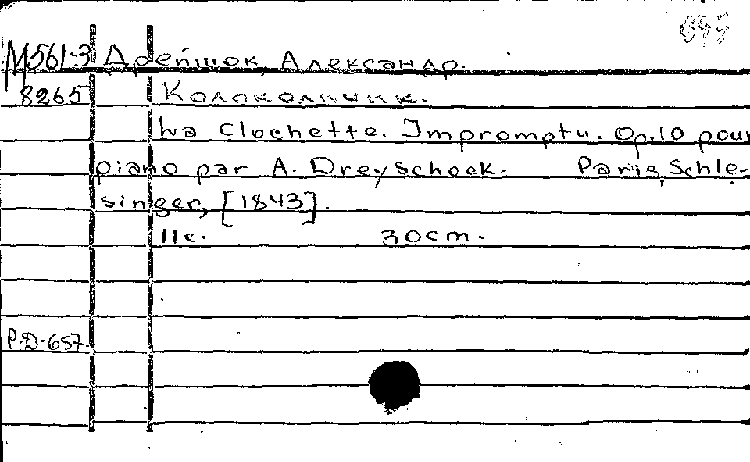 М561-3 Дрейшок, Александр.
8265 Колокольчик.
La Clochette. Impromptu. Op.10 pour
piano par A. Dreyschock. Paris, Schle-
singer, [1843].
11c. 30cm.
Р.Д-657.